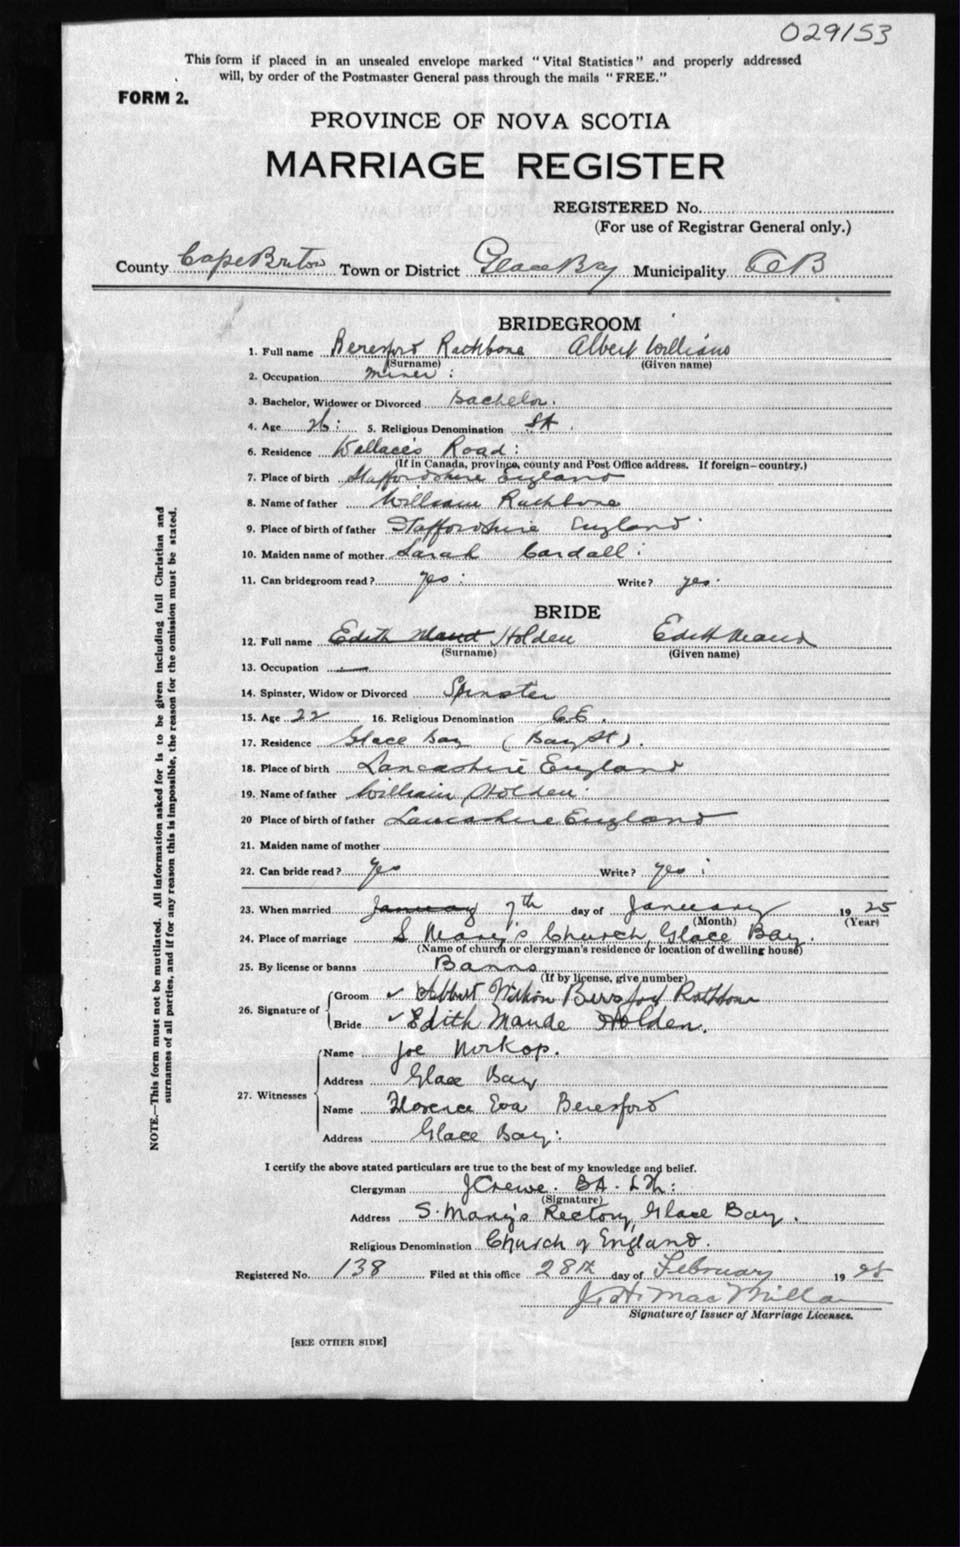 029153
This form if placed in an unsealed envelope marked "Vital Statistics" and properly addressed
will, by order of the Postmaster General pass through the mails "FREE."
FORM 2.
PROVINCE OF NOVA SCOTIA
MARRIAGE REGISTER
REGISTERED No.
(For use of Registrar General only.)
County Cape Breton Town or District Glace Bay Municipality CB
BRIDEGROOM
1. Full name Beresford Rathbone Albert William
(Surname) (Given name)
2. Occupation miner :
3. Bachelor, Widower or Divorced Bachelor.
4. Age 26 : 5. Religious Denomination SA .
6. Residence Wallace's Road :
(If in Canada, province, county and Post Office address. If foreign—country.)
7. Place of birth Staffordshire England
8. Name of father William Rathbone
9. Place of birth of father Staffordshire England
10. Maiden name of mother Sarah Cardall :
11. Can bridegroom read? yes : Write? yes.
BRIDE
12. Full name Edith Maud Holden Edith Maud
(Surname) (Given name)
13. Occupation —
14. Spinster, Widow or Divorced Spinster
15. Age 22 16. Religious Denomination C.E.
17. Residence Glace Bay (Bay St).
18. Place of birth Lancashire England
19. Name of father William Holden
20 Place of birth of father Lancashire England
21. Maiden name of mother
22. Can bride read? Yes Write? yes :
23. When married January 7th day of January 1925
(Month) (Year)
24. Place of marriage S Mary's Church, Glace Bay.
(Name of church or clergyman's residence or location of dwelling house)
25. By license or banns Banns
(If by license, give number)
26. Signature of Groom ✓ Albert Beresford Rathbone
Bride ✓ Edith Maude Holden.
27. Witnesses
Name Joe
Address Glace Bay
Name Florence Eva Beresford
Address Glace Bay :
I certify the above stated particulars are true to the best of my knowledge and belief.
Clergyman J Crewe. BA. L Th :
(Signature)
Address S. Mary's Rectory, Glace Bay.
Religious Denomination Church of England.
Registered No. 138 Filed at this office 28th day of February 1925
J. H. MacMillan
Signature of Issuer of Marriage Licenses.
[SEE OTHER SIDE]
NOTE.—This form must not be mutilated. All information asked for is to be given including full Christian and
surnames of all parties, and if for any reason this is impossible, the reason for the omission must be stated.